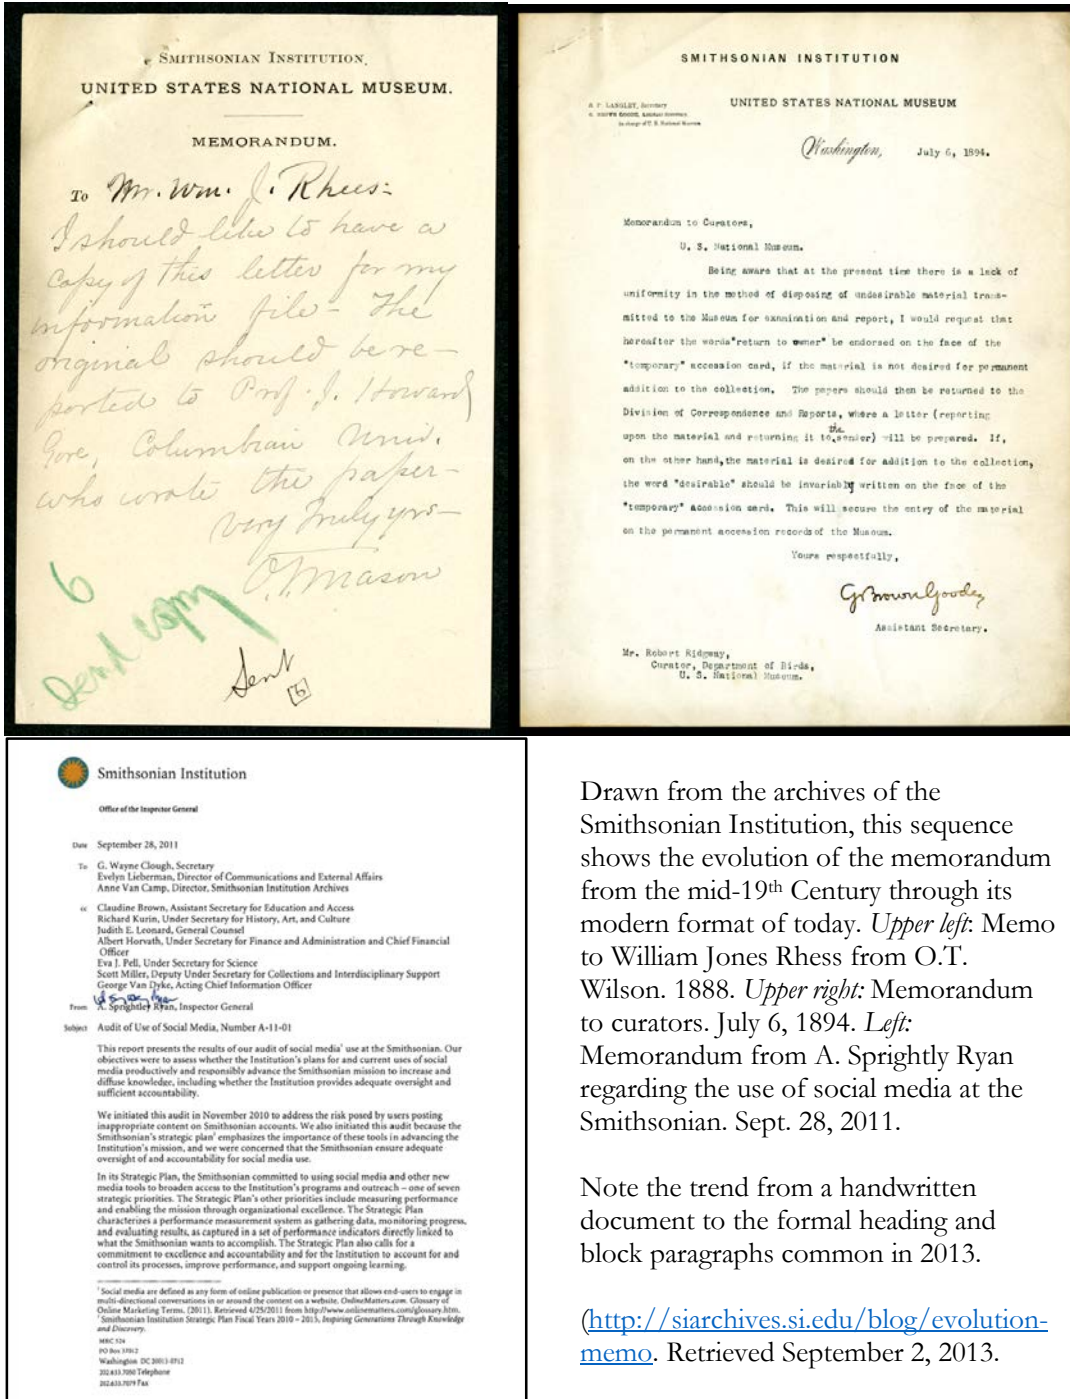 SMITHSONIAN INSTITUTION,
UNITED STATES NATIONAL MUSEUM.
MEMORANDUM.
To Mr. Wm. J. Rhees:
I should like to have a
copy of this letter for my
information file - The
original should be re-
ported to Prof. J. Howard
Gore, Columbian Univ.
who wrote the paper-
Very truly yrs-
O.T. Mason
6
Send copy
Sent
6
SMITHSONIAN INSTITUTION
S. P. LANGLEY, Secretary
G. BROWN GOODE, Assistant Secretary,
in charge of U. S. National Museum
UNITED STATES NATIONAL MUSEUM
Washington, July 6, 1894.
Memorandum to Curators,
U. S. National Museum.
Being aware that at the present time there is a lack of
uniformity in the method of disposing of undesirable material trans-
mitted to the Museum for examination and report, I would request that
hereafter the words "return to owner" be endorsed on the face of the
"temporary" accession card, if the material is not desired for permanent
addition to the collection. The papers should then be returned to the
Division of Correspondence and Reports, where a letter (reporting
upon the material and returning it to the sender) will be prepared. If,
on the other hand, the material is desired for addition to the collection,
the word "desirable" should be invariably written on the face of the
"temporary" accession card. This will secure the entry of the material
on the permanent accession records of the Museum.
Yours respectfully,
G. Brown Goode
Assistant Secretary.
Mr. Robert Ridgway,
Curator, Department of Birds,
U. S. National Museum.
Smithsonian Institution
Office of the Inspector General
Date September 28, 2011
To G. Wayne Clough, Secretary
Evelyn Lieberman, Director of Communications and External Affairs
Anne Van Camp, Director, Smithsonian Institution Archives
cc Claudine Brown, Assistant Secretary for Education and Access
Richard Kurin, Under Secretary for History, Art, and Culture
Judith E. Leonard, General Counsel
Albert Horvath, Under Secretary for Finance and Administration and Chief Financial
Officer
Eva J. Pell, Under Secretary for Science
Scott Miller, Deputy Under Secretary for Collections and Interdisciplinary Support
George Van Dyke, Acting Chief Information Officer
From A. Sprightley Ryan, Inspector General
Subject Audit of Use of Social Media, Number A-11-01
This report presents the results of our audit of social media¹ use at the Smithsonian. Our
objectives were to assess whether the Institution's plans for and current uses of social
media productively and responsibly advance the Smithsonian mission to increase and
diffuse knowledge, including whether the Institution provides adequate oversight and
sufficient accountability.
We initiated this audit in November 2010 to address the risk posed by users posting
inappropriate content on Smithsonian accounts. We also initiated this audit because the
Smithsonian's strategic plan² emphasizes the importance of these tools in advancing the
Institution's mission, and we were concerned that the Smithsonian ensure adequate
oversight of and accountability for social media use.
In its Strategic Plan, the Smithsonian committed to using social media and other new
media tools to broaden access to the Institution's programs and outreach – one of seven
strategic priorities. The Strategic Plan's other priorities include measuring performance
and enabling the mission through organizational excellence. The Strategic Plan
characterizes a performance measurement system as gathering data, monitoring progress,
and evaluating results, as captured in a set of performance indicators directly linked to
what the Smithsonian wants to accomplish. The Strategic Plan also calls for a
commitment to excellence and accountability and for the Institution to account for and
control its processes, improve performance, and support ongoing learning.
¹ Social media are defined as any form of online publication or presence that allows end-users to engage in
multi-directional conversations in or around the content on a website. OnlineMatters.com. Glossary of
Online Marketing Terms. (2011). Retrieved 4/25/2011 from http://www.onlinematters.com/glossary.htm.
² Smithsonian Institution Strategic Plan Fiscal Years 2010 – 2015, Inspiring Generations Through Knowledge
and Discovery.
MRC 524
PO Box 37012
Washington DC 20013-0712
202.633.7050 Telephone
202.633.7079 Fax
Drawn from the archives of the
Smithsonian Institution, this sequence
shows the evolution of the memorandum
from the mid-19th Century through its
modern format of today. Upper left: Memo
to William Jones Rhess from O.T.
Wilson. 1888. Upper right: Memorandum
to curators. July 6, 1894. Left:
Memorandum from A. Sprightly Ryan
regarding the use of social media at the
Smithsonian. Sept. 28, 2011.
Note the trend from a handwritten
document to the formal heading and
block paragraphs common in 2013.
(http://siarchives.si.edu/blog/evolution-
memo. Retrieved September 2, 2013.